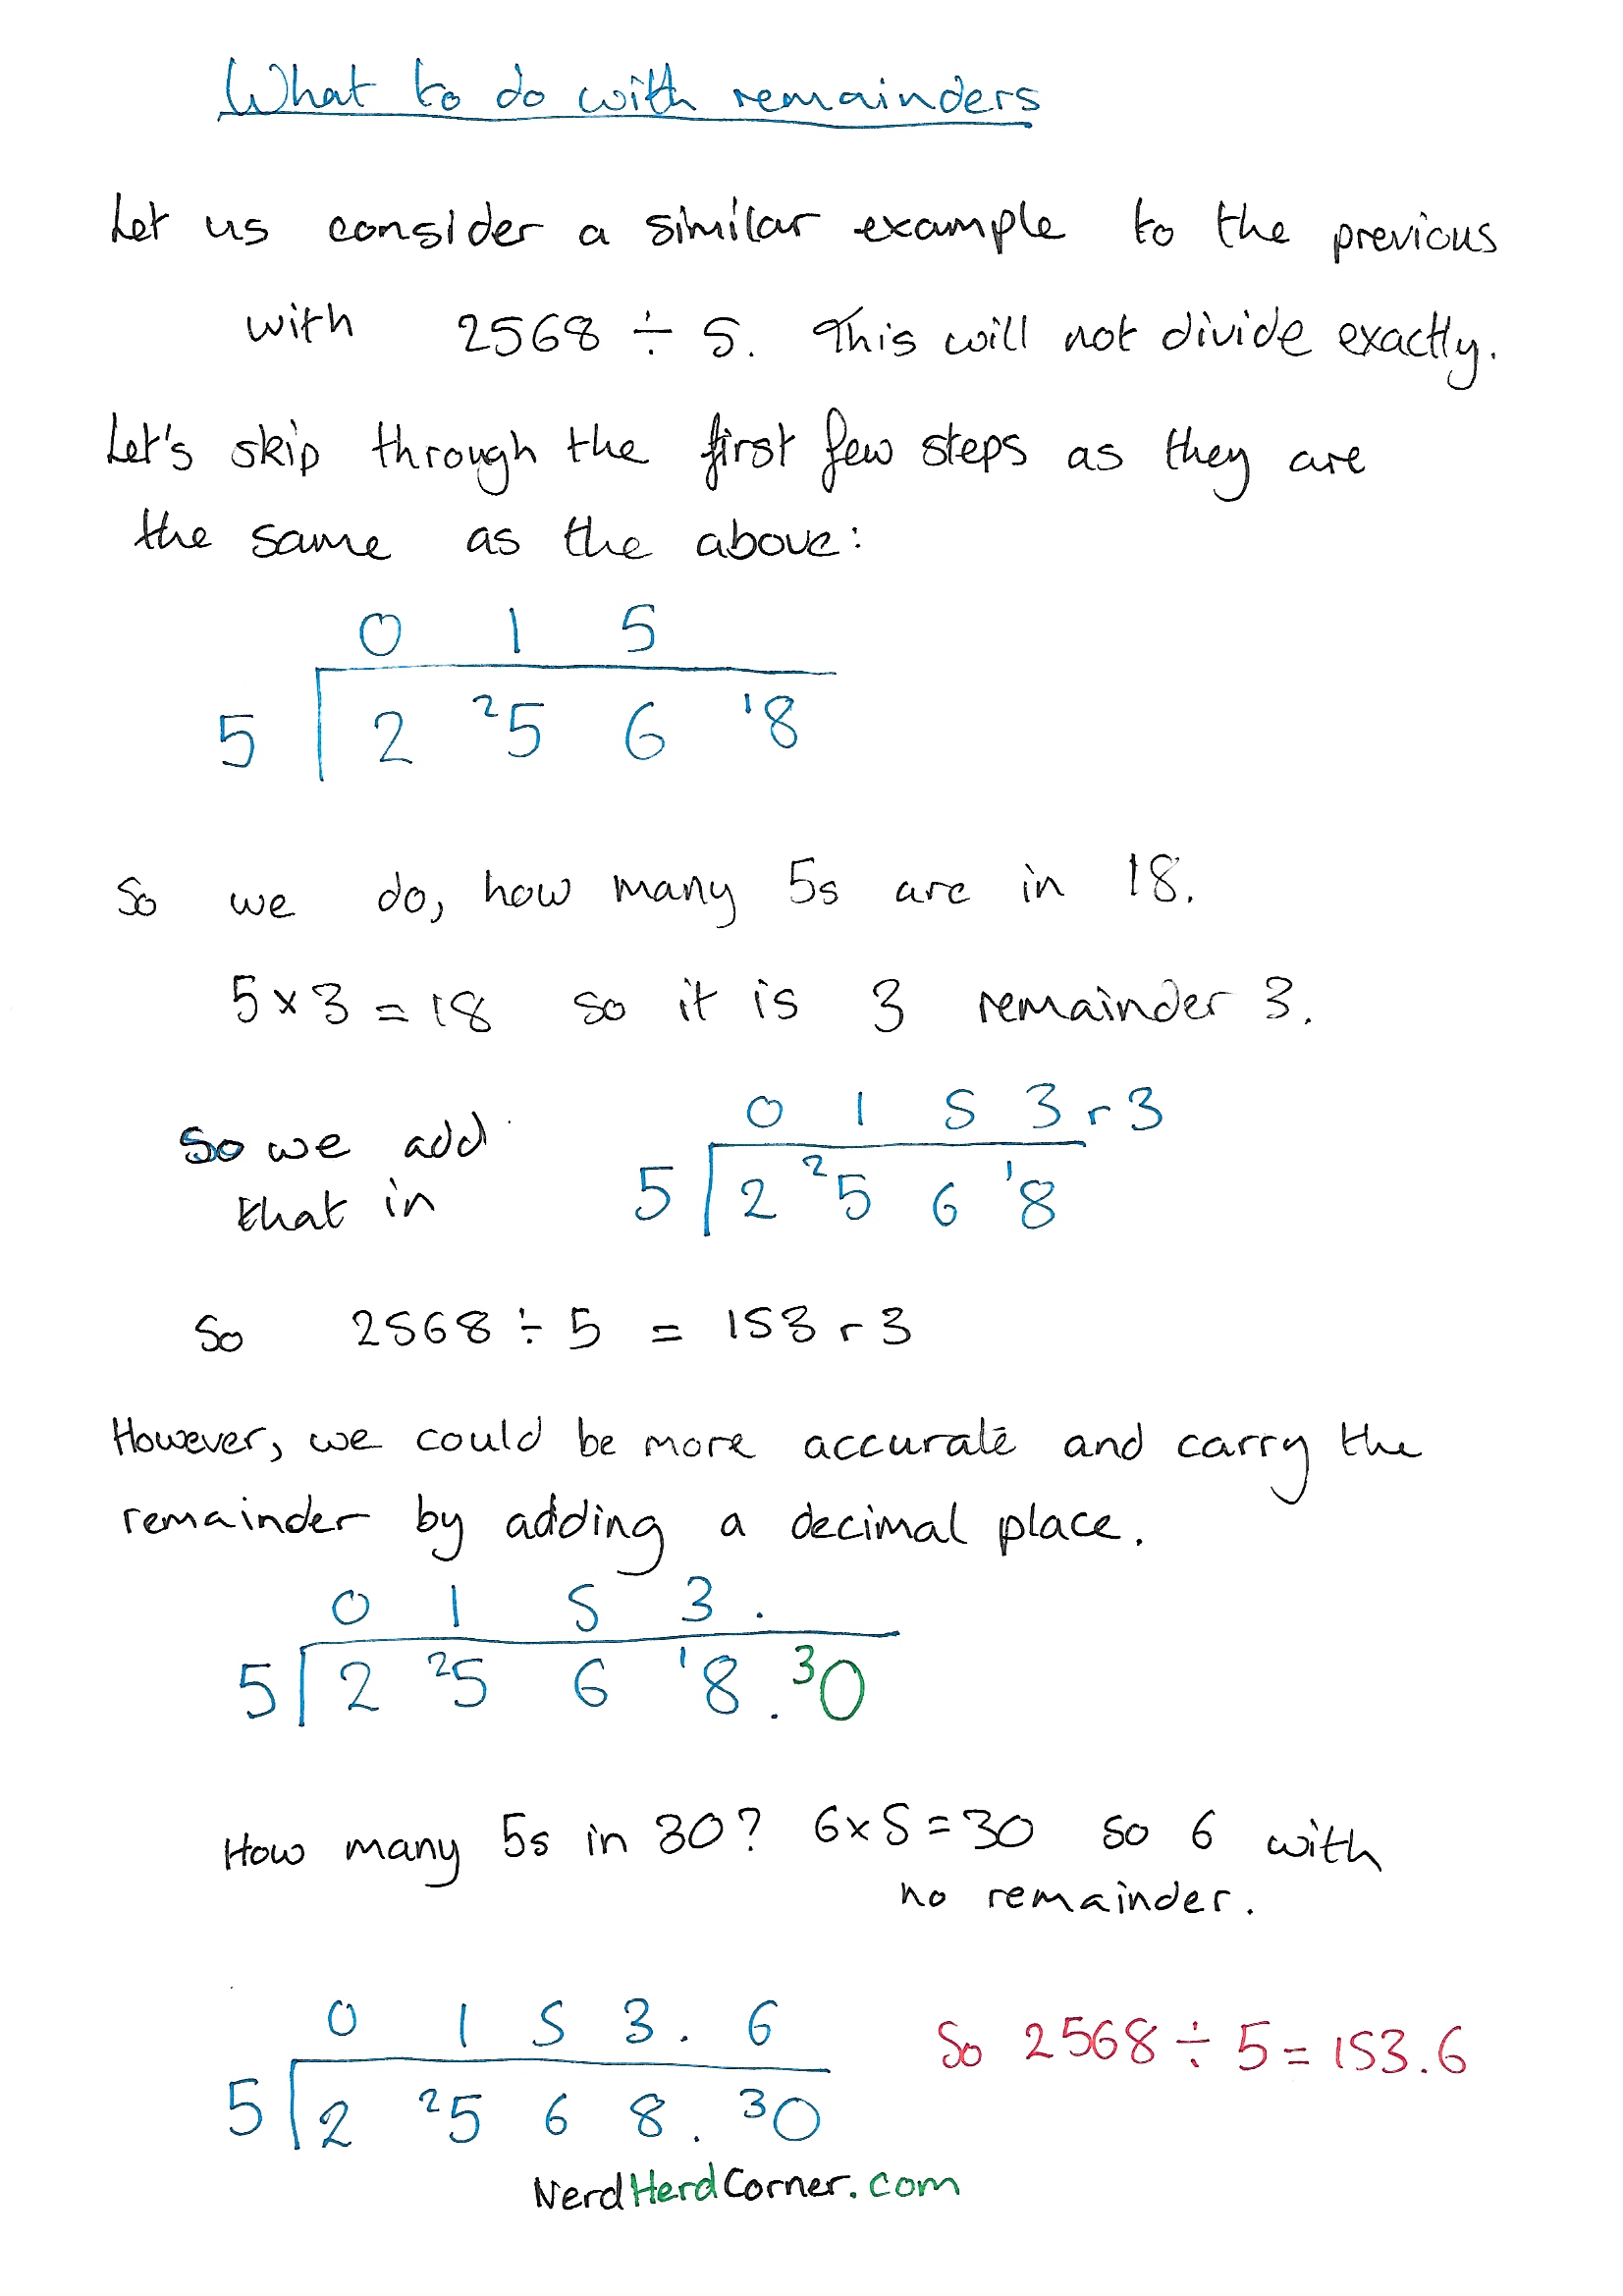 What to do with remainders
Let us consider a similar example to the previous
with 2568 ÷ 5. This will not divide exactly.
Let's skip through the first few steps as they are
the same as the above:
0 1 5
5 2 ²5 6 ¹8
So we do, how many 5s are in 18.
5 × 3 = 18 so it is 3 remainder 3.
So we add
that in
0 1 5 3 r 3
5 2 ²5 6 ¹8
So 2568 ÷ 5 = 153 r 3
However, we could be more accurate and carry the
remainder by adding a decimal place.
0 1 5 3 .
5 2 ²5 6 ¹8 . ³0
How many 5s in 30? 6 × 5 = 30 so 6 with
no remainder.
0 1 5 3 . 6
5 2 ²5 6 8 . ³0
So 2568 ÷ 5 = 153.6
NerdHerdCorner.com